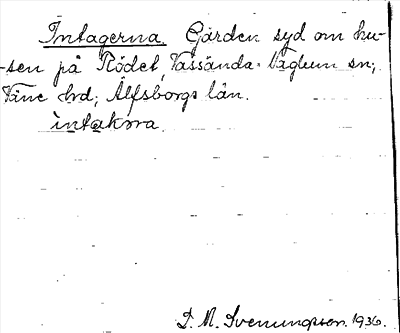 Intagerna. Gärden syd om hu-
-sen på Rödet, Vassända-Naglum sn;
Väne hrd; Älfsborgs län.
ìntakɷra.
S. M. Svenungsson. 1936.